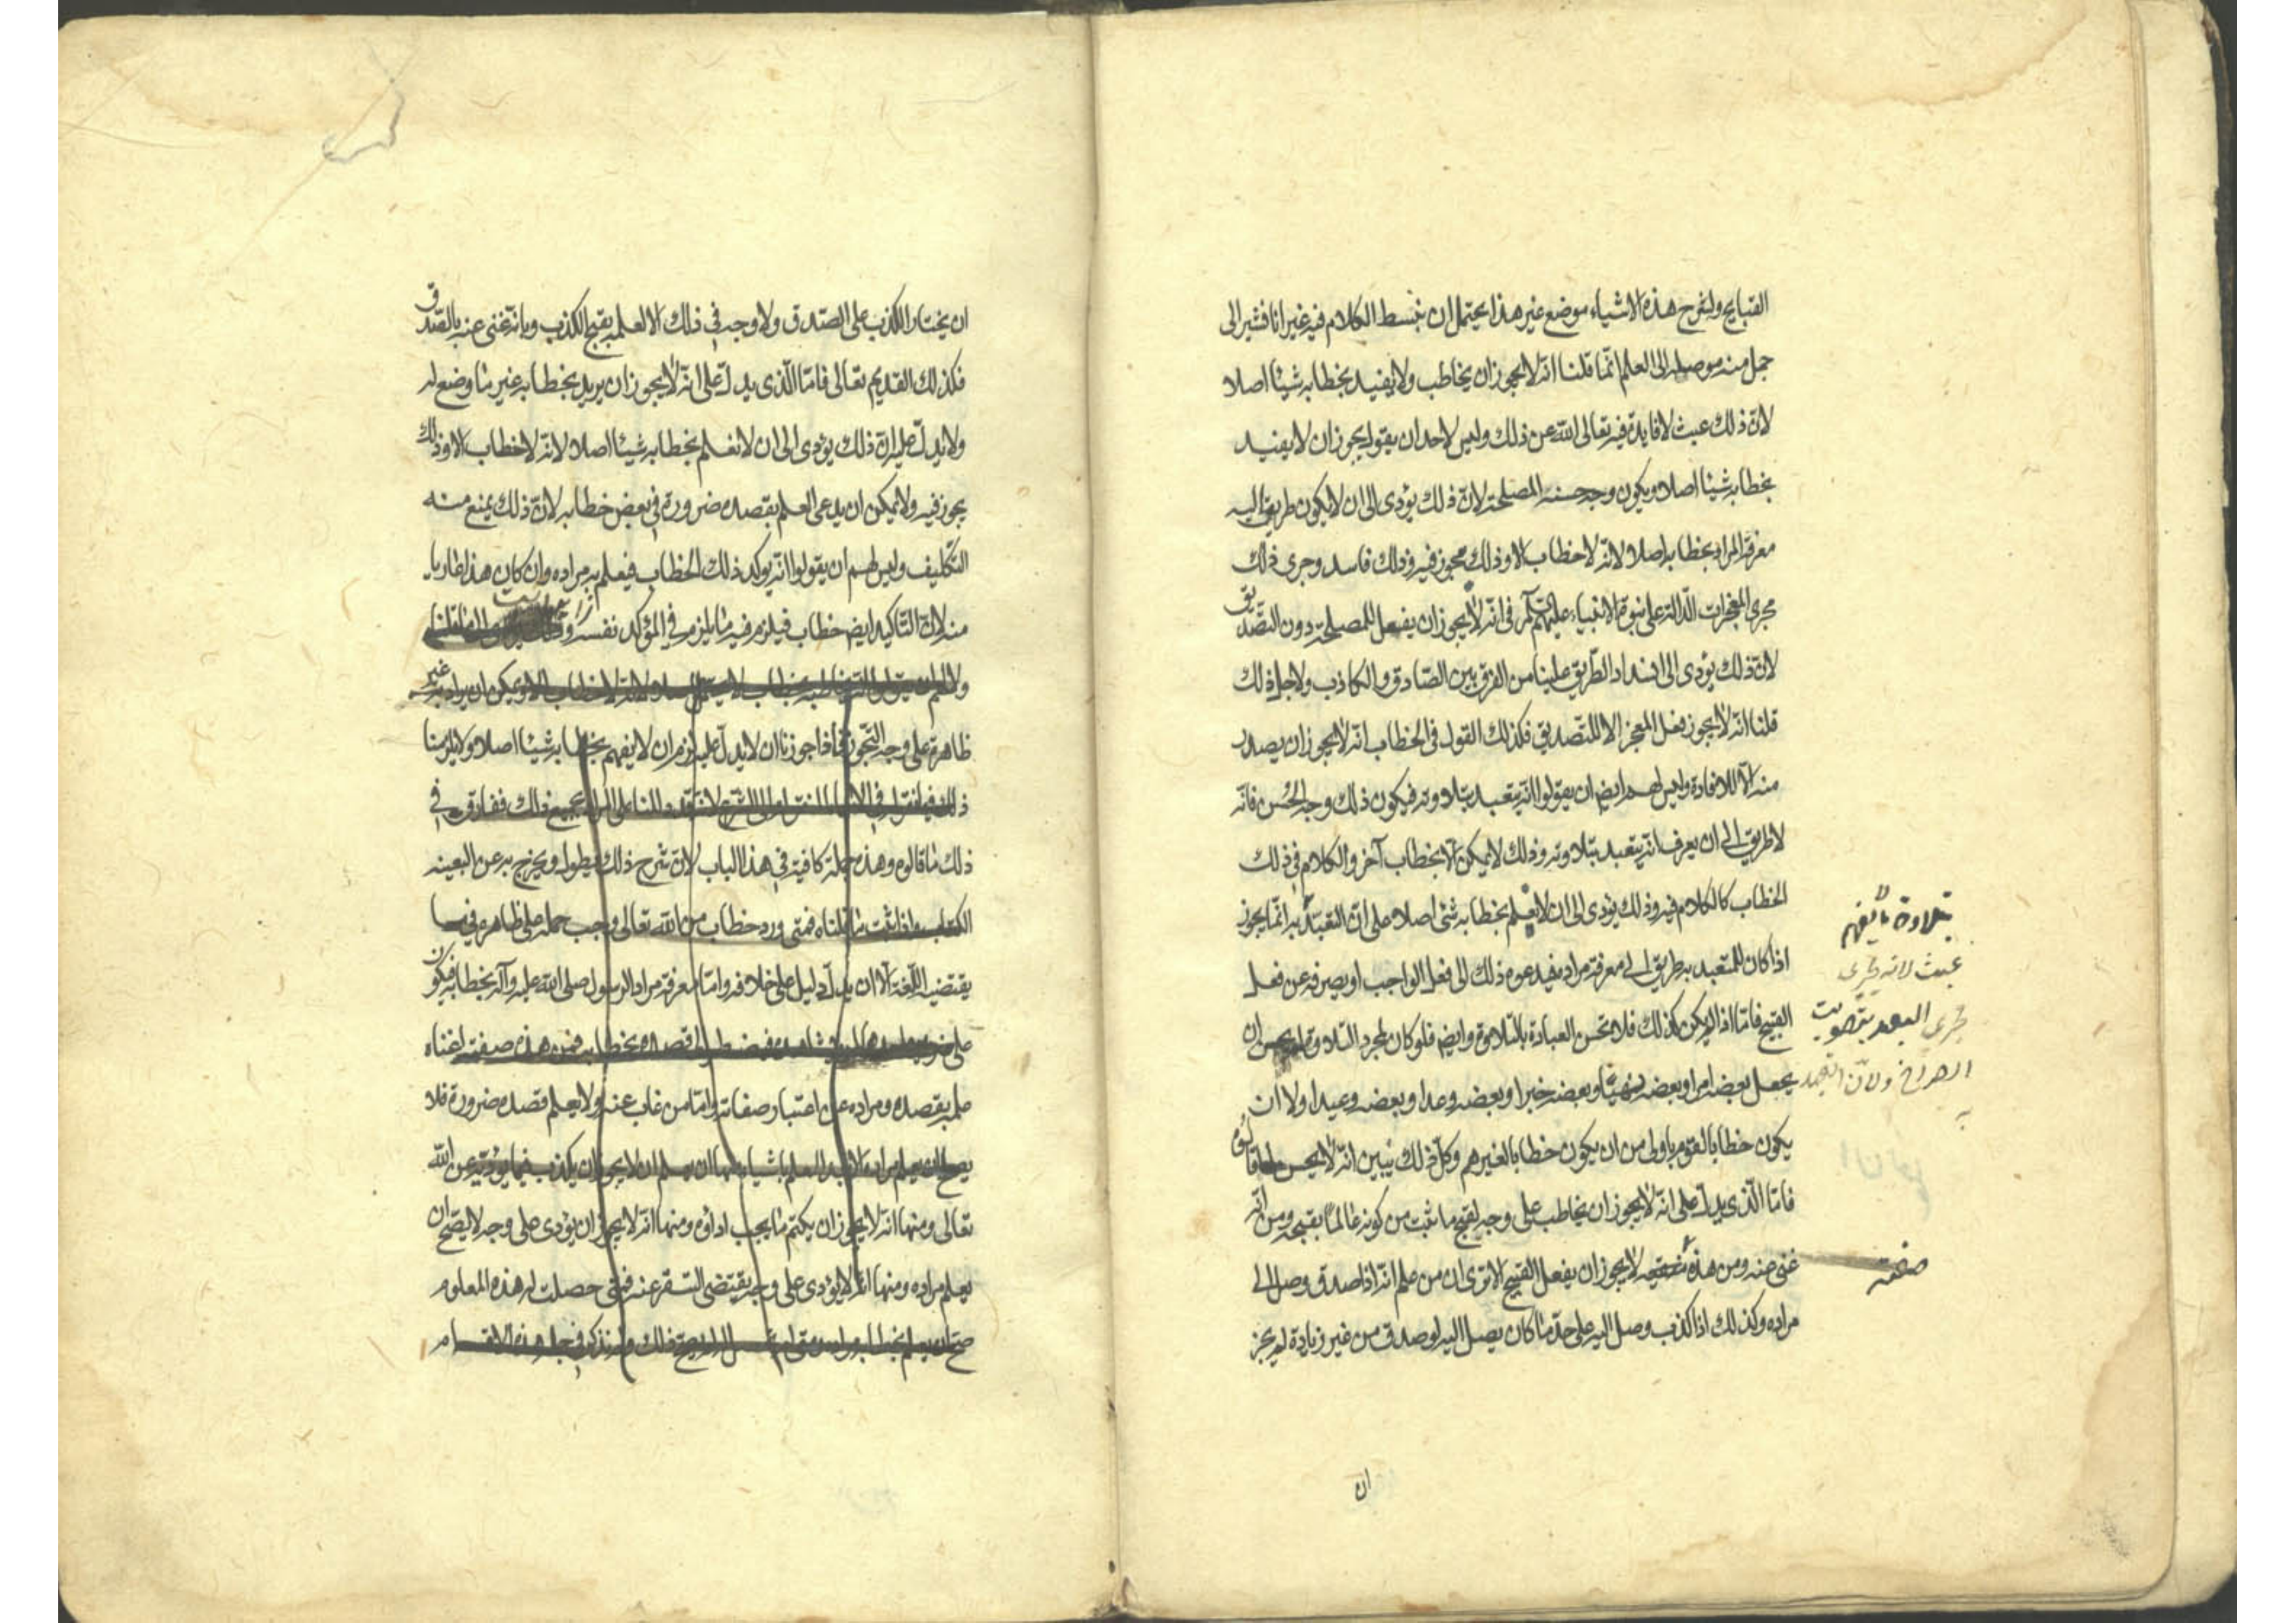 القبايح ولشرح هذه الاشياء موضع غير هذا يحتمل ان نبسط الكلام فيه غير انا نشير الى
جمل منه موصلة الى العلم انّما قلنا انّه لا يجوز ان يخاطب ولا يفيد بخطابه شيئا اصلا
لانّ ذلك عبث لا فايدة فيه تعالى اللّه عن ذلك وليس لاحد ان يقول يجوز ان لا يفيد
بخطابه شيئا اصلا ويكون وجه حسنه المصلحة لانّ ذلك يؤدى الى ان لا يكون طريق اليه
معرفة المراد بخطابه اصلا لانّه لا خطاب الا وذلك مجوز فيه وذلك فاسد وجرى ذلك
مجرى المعجزات الدّالة على نبوة الانبياء عليهم في انّه لا يجوز ان يفعل للمصلحة دون التّصديق
لانّ ذلك يؤدى الى انسداد الطّريق علينا من الفرق بين الصّادق والكاذب ولاجل ذلك
قلنا انّه لا يجوز فعل المعجز الا للتّصديق فكذلك القول فى الخطاب انّه لا يجوز ان يصدر
منه الّا للافادة وليس لهم ايض ان يقولوا انّه يتعبد بتلاوته فيكون ذلك وجه الحُسن فانّه
لا طريق الى ان يعرف انّه يتعبد بتلاوته وذلك لا يمكن الّا بخطاب آخر والكلام في ذلك
الخطاب كالكلام فيه وذلك يؤدى الى ان لا يعلم بخطابه شئ اصلا على انّ التعبّد به انّما يجوز
اذا كان للمتعبد به طريق الى معرفة مراده فيدعوه ذلك الى فعل الواجب او يصرفه عن فعل
القبيح فامّا اذا لم يكن كذلك فلا تحسن العبادة بالتلاوة وايضا فلو كان لمجرد التلاوة لم يحسن ان
يجعل بعضه امرا وبعضه نهيا وبعضه خبرا وبعضه وعدا وبعضه وعيدا ولا ان
يكون خطابا لقوم باولى من ان يكون خطابا لغيرهم وكلّ ذلك يبين انّه لا يحسن ما قالوه
فامّا الّذى يدلّ على انّه لا يجوز ان يخاطب على وجه يقبح ما ثبت من كونه عالماً بقبحه ومن انّه
غنى عنه ومن هذه لا يجوز ان يفعل القبيح الا ترى ان من علم انّه اذا صدق وصل الى
مراده وكذلك اذا كذب وصل اليه على حدّ ما كان يصل اليه لو صدق من غير زيادة لم يجز
تلاوة ما لا يفهم
عبث لانه يجرى
مجرى التعبد بتصويت
ولانّ التعبد
به
صفته
ان
ان يختار الكذب على الصّدق ولا وجه فى ذلك الا لعلمه بقبح الكذب وبانّه غنى عنه بالصّدق
فكذلك القديم تعالى فامّا الّذى يدلّ على انّه لا يجوز ان يريد بخطابه غير ما وضع له
ولا يدلّ عليه انّ ذلك يؤدى الى ان لا نعلم بخطابه شيئا اصلا لانّه لا خطاب الا وذلك
يجوز فيه ولا يمكن ان يدعى العلم بقصده ضرورة في بعض خطابه لانّ ذلك يمنع منه
التّكليف وليس لهم ان يقولوا انّه يوكد ذلك الخطاب فيعلم به مراده وان كان هذا عاريا
منه لانّ التّاكيد ايض خطاب فيلزم فيه ما يلزم في المؤكد نفسه
ولا لهم ان يقولوا انّه يخاطبه بخطاب لا يحتمل اصلا لانّه لا خطاب الا ويمكن ان يراد به غير
ظاهره على وجه التّجوز فاذا جوزنا ان لا يدلّ عليه لزم ان لا يفهم بخطابه شيئا اصلا ولا يلزمنا
ذلك فيما نقوله فى
ذلك ما قالوه وهذه جملة كافية في هذا الباب لانّ شرح ذلك يطول ويخرج به عن البغية
الكتاب واذا ثبت ما قلناه فمتى ورد خطاب من اللّه تعالى وجب حمله على ظاهره فى ما
يقتضيه اللّغة الّا ان يدلّ دليل على خلافه وامّا معرفة مراد الرسول صلى اللّه عليه وآله بخطابه فيكون
على ضربين هذه صفته اغناه
علمه بقصده ومراده عن اعتبار صفاته وامّا من غاب عنه ولا يعلم قصده ضرورة فلا
يصح ان يعلم مراده الا بعد العلم باشياء منها ان يعلم ان لا يجوز ان يكذب فيما يؤدّيه عن اللّه
تعالى ومنها انّه لا يجوز ان يكتم ما يجب اداؤه ومنها انّه لا يجوز ان يؤدى على وجه لا يصّح ان
يعلم مراده ومنها انّه لا يؤدى على وجه يقتضى التنفر عنه فمتى حصلت له هذه العلوم
صّح ان يعلم بخطابه مراده ومتى لم